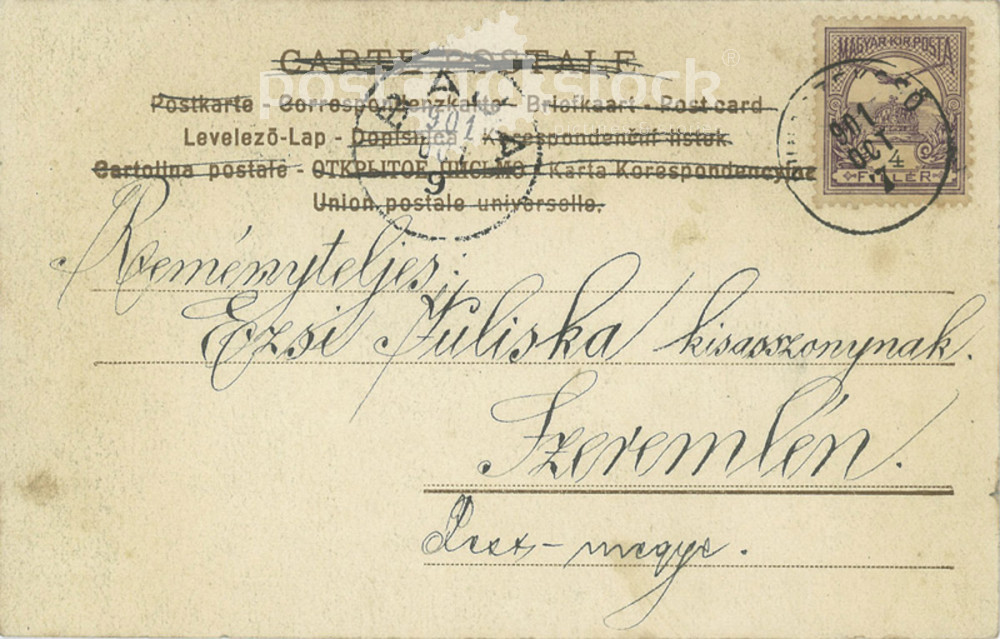 CARTE POSTALE
Postkarte - Correspondenzkarte - Briefkaart - Post card
Levelező-Lap - Dopisnica - Korespondenční listek.
Cartolina postale - ОТКРЫТОЕ ПИСЬМО - Karta Korespondencyjna
Union postale universelle.
postcardstock
MAGYAR KIR. POSTA
4
FILLÉR
BAJA
901
OCT
9
901
OCT
7
Reményteljes:
Ezsi Juliska kisasszonynak.
Szeremlén.
Pest-megye.